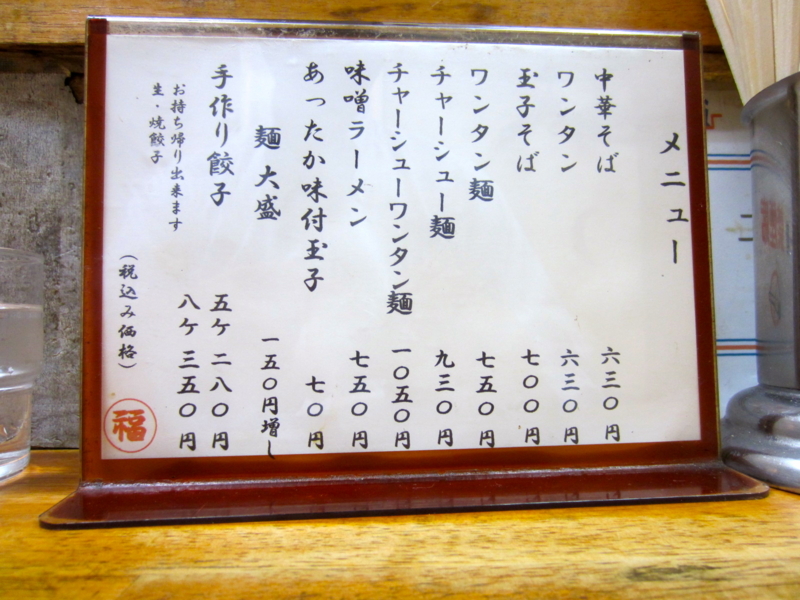 メニュー
中華そば 六三〇円
ワンタン 六三〇円
玉子そば 七〇〇円
ワンタン麺 七五〇円
チャーシュー麺 九三〇円
チャーシューワンタン麺 一〇五〇円
味噌ラーメン 七五〇円
あったか味付玉子 七〇円
麺 大盛 一五〇円増し
手作り餃子 五ケ 二八〇円
八ケ 三五〇円
お持ち帰り出来ます
生・焼餃子
(税込み価格)
福